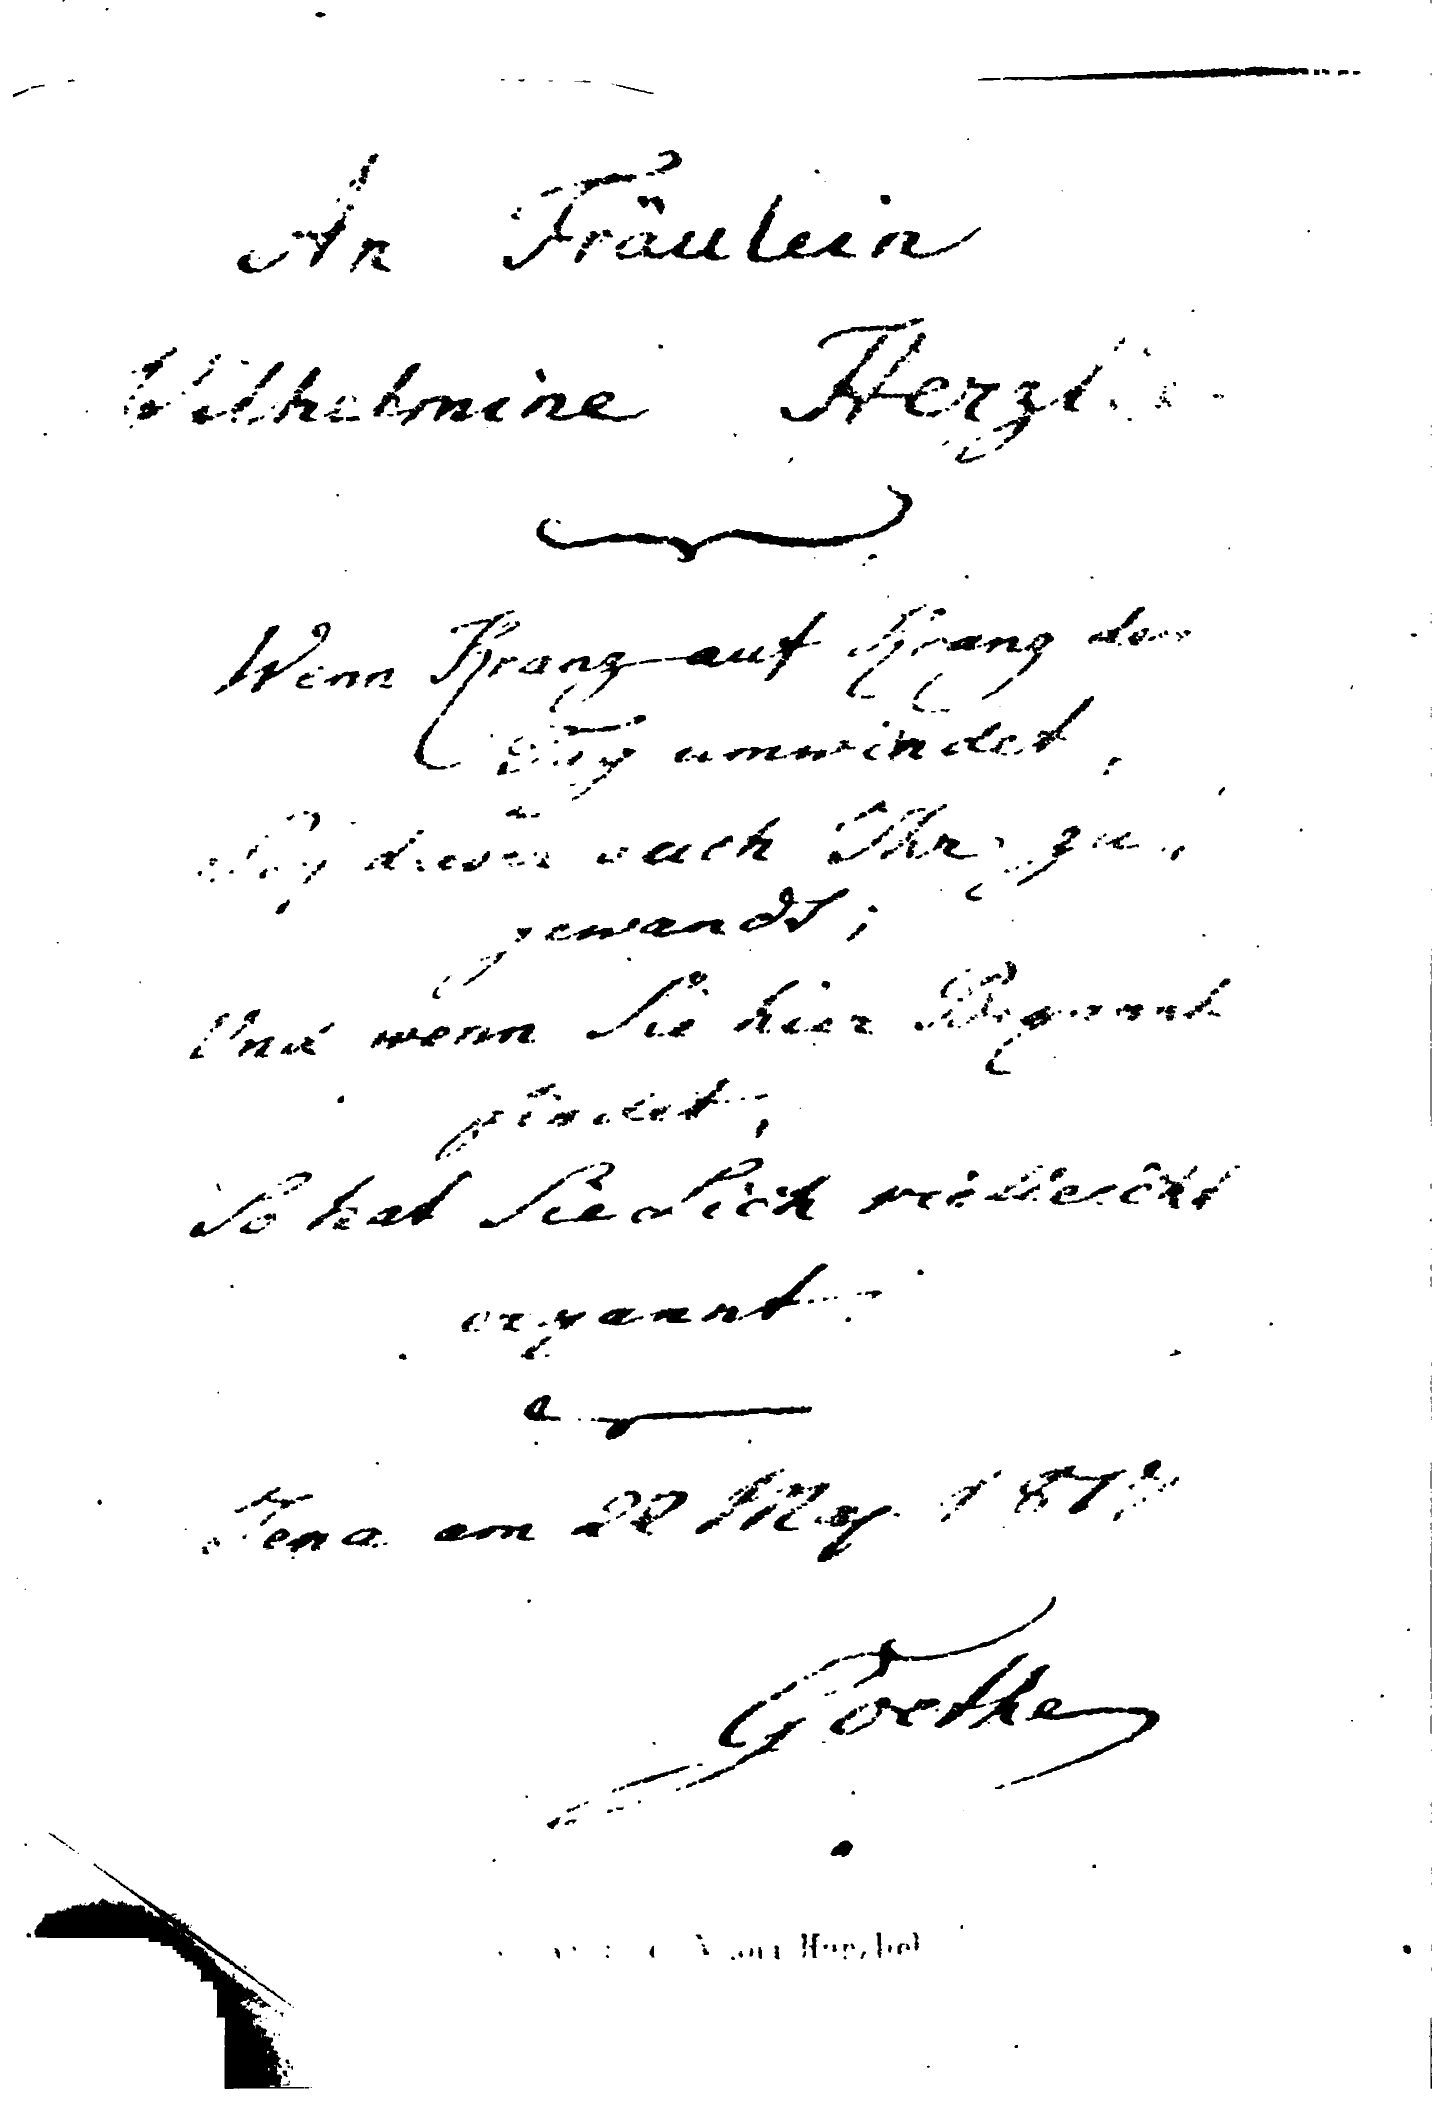 An Fräulein
Wilhelmine Herzlie
Wenn Kranz auf Kranz den
Tag umwindet,
Sey dieser auch Ihr zu„
gewandt;
Und wenn Sie hier Bekannte
findet,
So hat Sie Sich vielleicht
erkannt.
Jena am 22 May 1817
Goethe